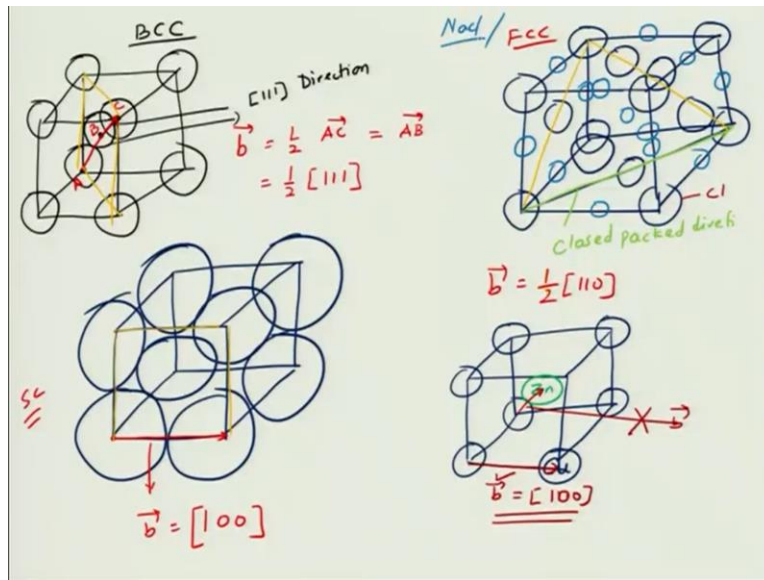 BCC
[111] Direction
A
B
C
b⃗ = 1/2 AC⃗ = AB⃗
= 1/2 [111]
Nacl / FCC
Cl
Closed packed directi
b⃗ = 1/2 [110]
SC
b⃗ = [100]
Zn
b⃗
Cu
b⃗ = [100]